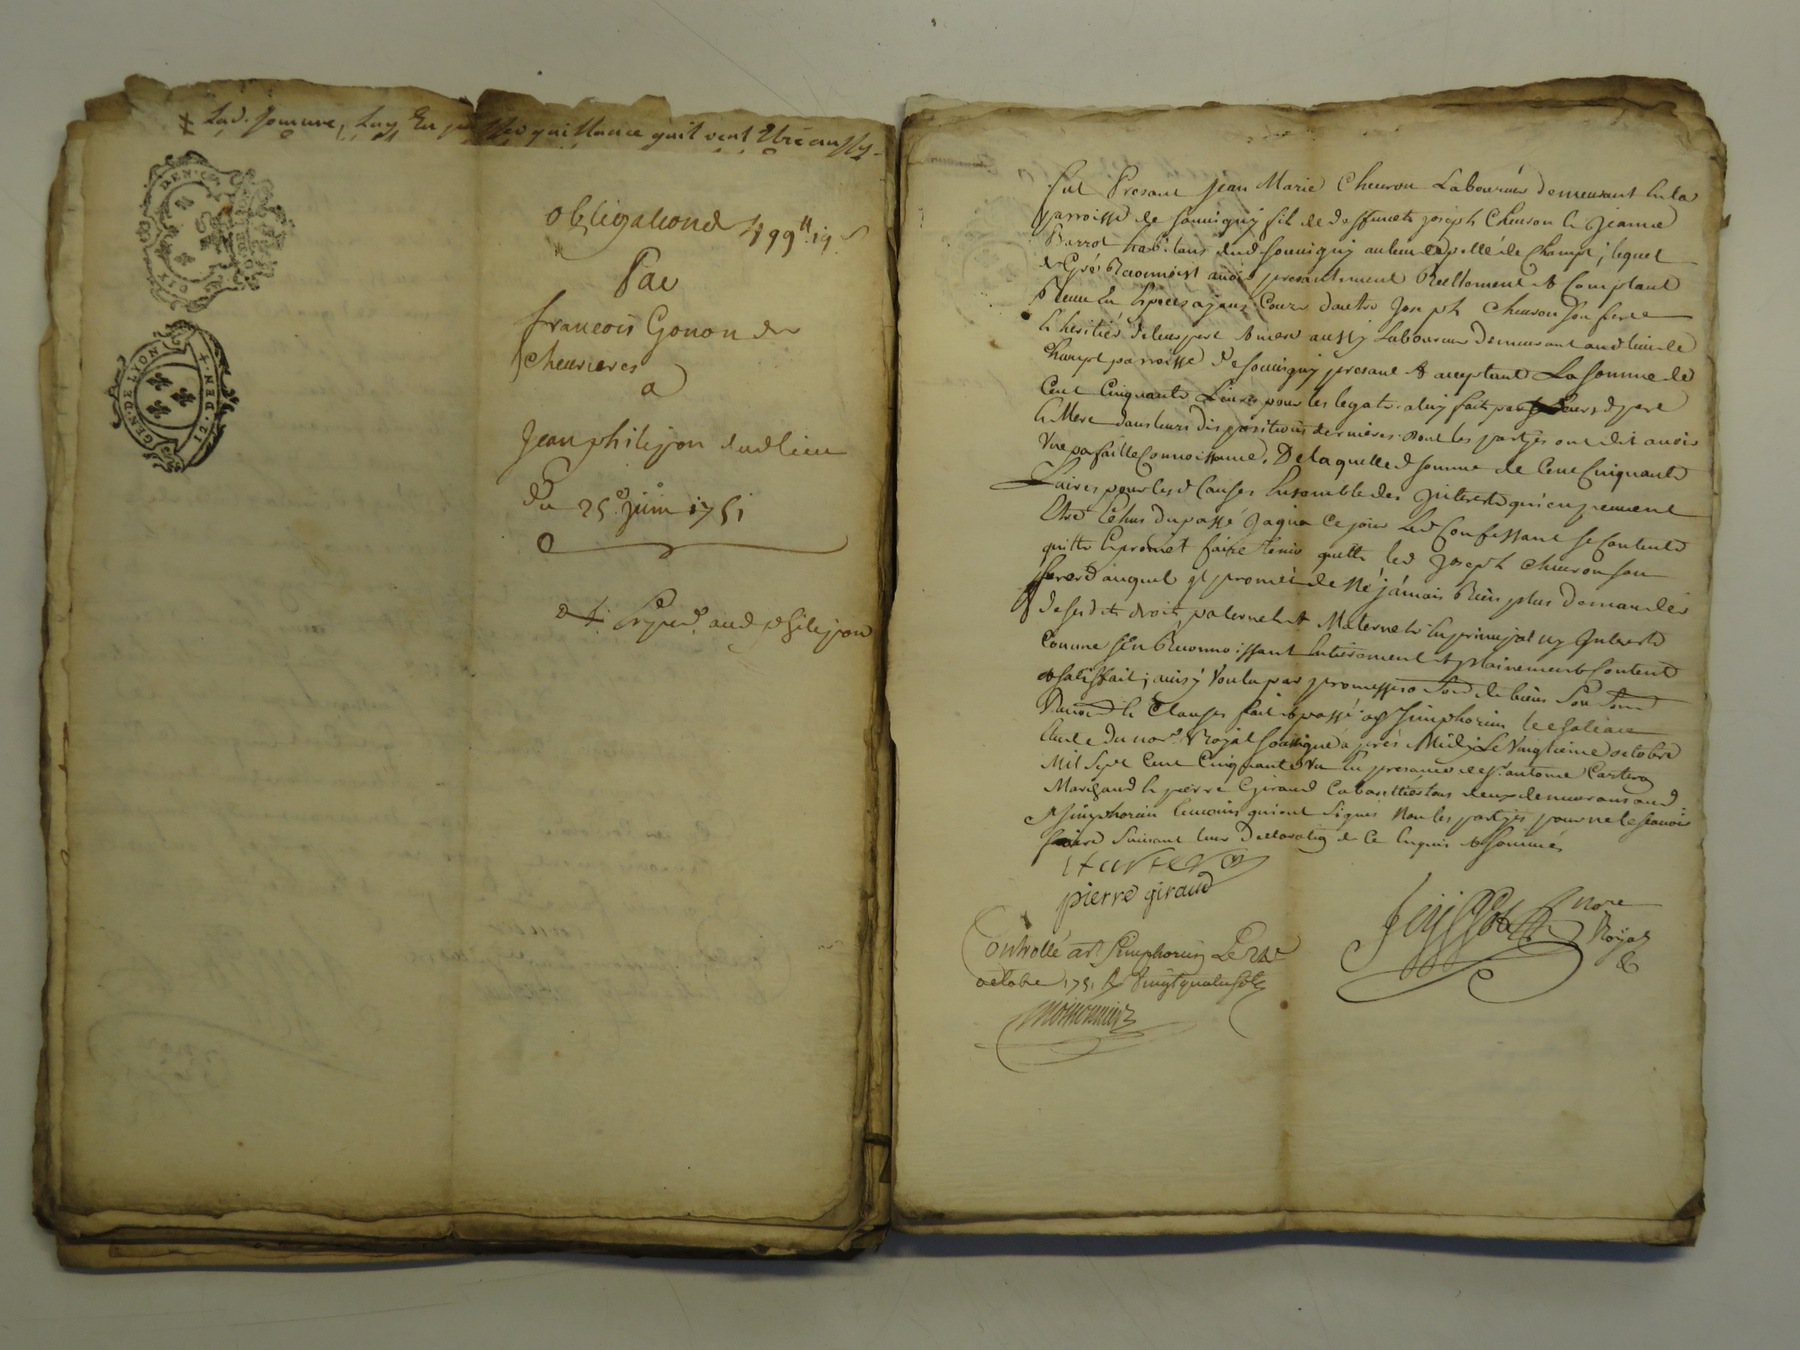 Lad. somme, luy En quittance quil veut Etre aussy
GEN. DE LYON
obligation de 499ll 19s
Par
francois Gonon de
cheurieres
a
Jean philipon dud lieu
Du 25e Juin 1751
Exped. aud philipon
fut Presant Jean Marie Cheuron Laboureur demeurant en la
parroisse de souuigny fils de deffuncts joseph Cheuron & Jeanne
habitans dud souuigny au lieu de Champt, lequel
de Gré Reconnoist auoir presantement Reellement & Comptant
Receu En Especes ajant Cours d'autre Joseph Cheuron son frere
& heritier de leurs pere & mere aussy Laboureur demeurant aud lieu de
Champt parroisse de souuigny presant & acceptant La somme de
Cent Cinquante Liures pour les legats aluy faits par leurs d pere
& Mere dans leurs dispositions dernieres dont les partyes ont dit auoir
Vne parfaitte Connoissance, De laquelle d somme de Cent Cinquante
Liures pour lesd Causes Ensemble des Interests qui en peuuent
Etre Echus du passé jusqua Ce jour led Confessant se Contente
quitte & promet faire tenir quitte led Joseph Cheuron son
frere auquel Il promet de Ne jamais Rien plus demander
de sesdits droits paternels & Maternels En principal ny Interests
Comme s'En Reconnoissant Entierement & plainement Content
& satisfait; ainsy Voulu par promesses de biens
& Clauses fait & passé a St Simphorien le
Etude du nore Royal soussigné aprés Midy Le Vingtieme octobre
Mil Sept Cent Cinquante Vn En presance de sr antoine
Marchand & pierre Giraud Cabarettier tous deux demeurans aud
St Simphorien temoins qui ont signés Non les partyes pour ne le sçauoir
faire suiuant leur Declaration de Ce Enquis & sommés
pierre giraud
nore
Royal
Controllé a St Simphorien Le
octobre 1751 R Vingt quatre sols